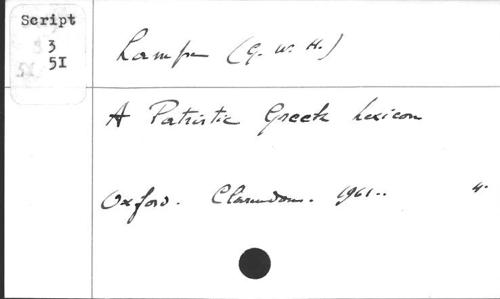 Script
3
51
Lampe (G. W. H.)
A Patristic Greek Lexicon
Oxford. Clarendon. 1961.. 4.